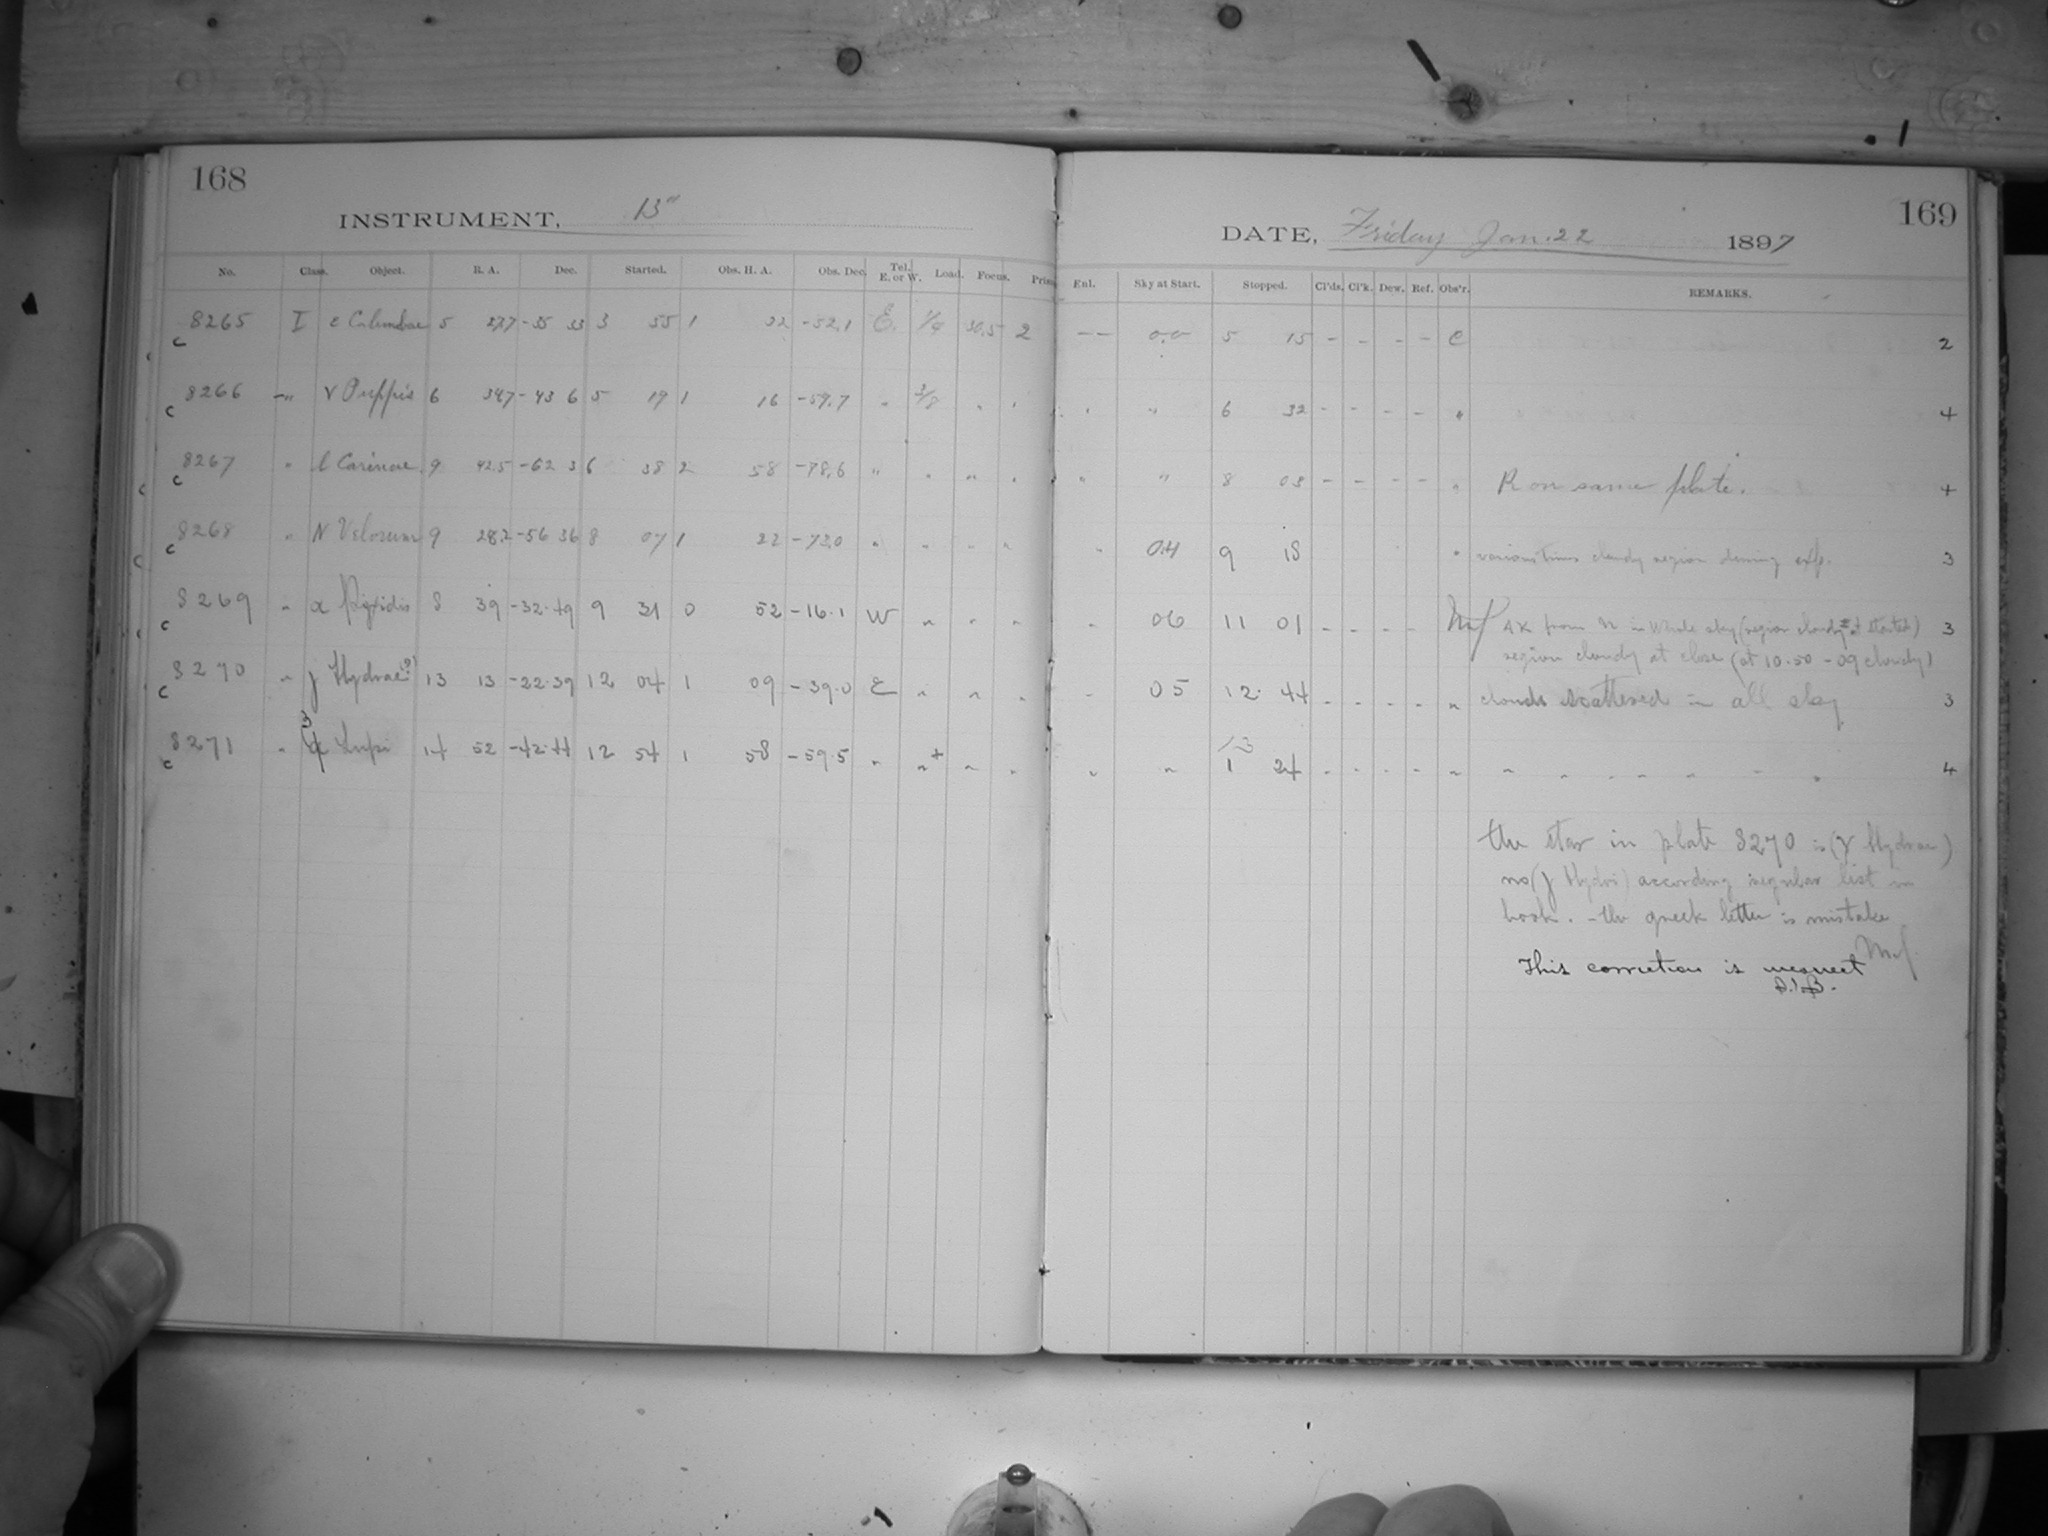 168
INSTRUMENT, 13"
No. Class. Object. R. A. Dec. Started. Obs. H. A. Obs. Dec. Tel. E. or W. Load. Focus. Prism
c 8265 I ε Columbae 5 27.7 -35 33 3 55 1 32 -52.1 E. 1/4 30.5 2
c 8266 " v Puppis 6 34.7 -43 6 5 19 1 16 -59.7 " 3/8 " "
c 8267 " l Carinae 9 42.5 -62 3 6 38 2 58 -78.6 " " " "
c 8268 " N Velorum 9 28.2 -56 36 8 07 1 22 -73.0 " " " "
c 8269 " α Pyxidis 8 39 -32.49 9 31 0 52 -16.1 W " " "
c 8270 " γ Hydrae(?) 13 13 -22.39 12 04 1 09 -39.0 E " " "
c 8271 " Lupi 14 52 -42.44 12 54 1 58 -59.5 " "+ " "
169
DATE, Friday Jan. 22 1897
Enl. Sky at Start. Stopped. Cl'ds. Cl'k. Dew. Ref. Obs'r. REMARKS.
-- 0.0 5 15 - - - - C 2
" " 6 32 - - - - " 4
" " 8 03 - - - - " R on same plate. 4
" 0.4 9 18 " various times cloudy region during exp. 3
" 06 11 01 - - - - from in whole sky (region cloudy at started) 3
region cloudy at close (at 10.50 - 09 cloudy)
" 05 12. 44 - - - - " clouds scattered in all sky 3
" " 13
1 24 - - - - " " " " " " " " 4
the star in plate 8270 is (γ Hydrae)
no (γ Hydri) according regular list in
book. - the greek letter is mistake
This correction is incorrect